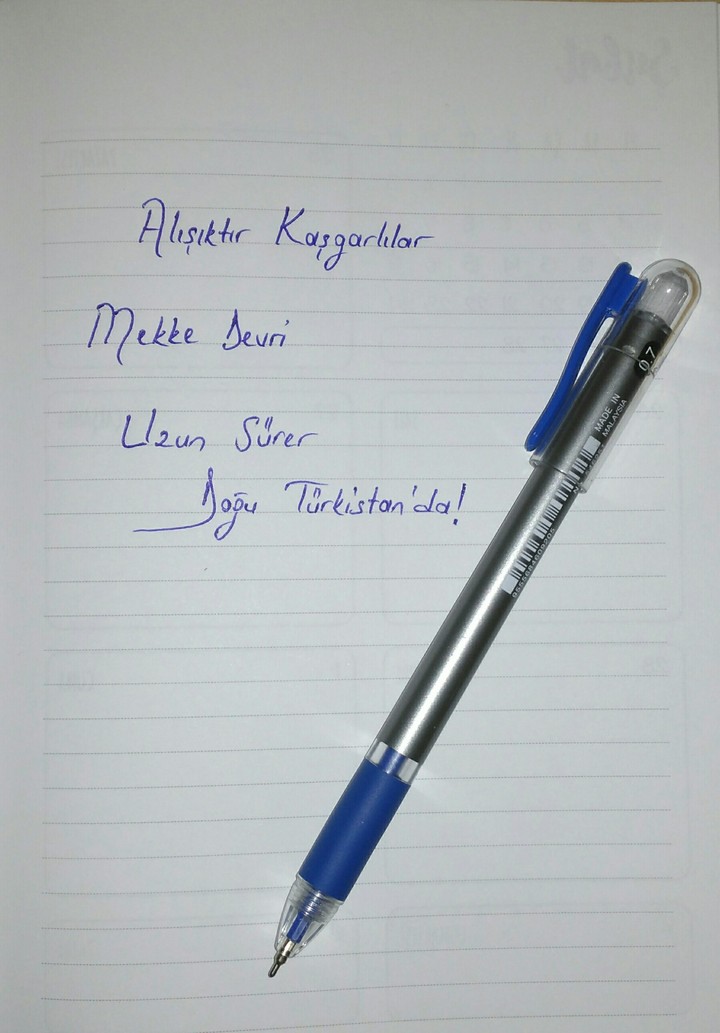 Alışıktır Kaşgarlılar
Mekke Devri
Uzun Sürer
Doğu Türkistan'da!
0.7
MADE IN
MALAYSIA